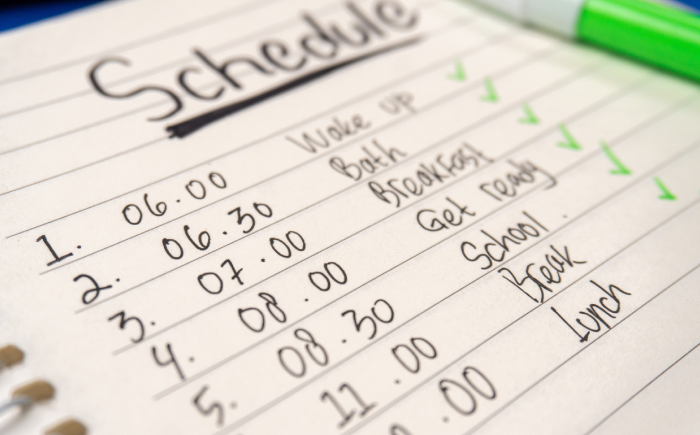 Schedule
1. 06.00 Wake up ✓
2. 06.30 Bath ✓
3. 07.00 Breakfast ✓
4. 08.00 Get ready ✓
5. 08.30 School ✓
11.00 Break ✓
.00 Lunch